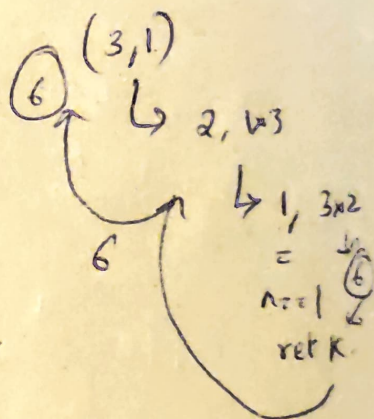 (3,1)
6
2, 1×3
1, 3×2
6
= 6
n==1
ret k.